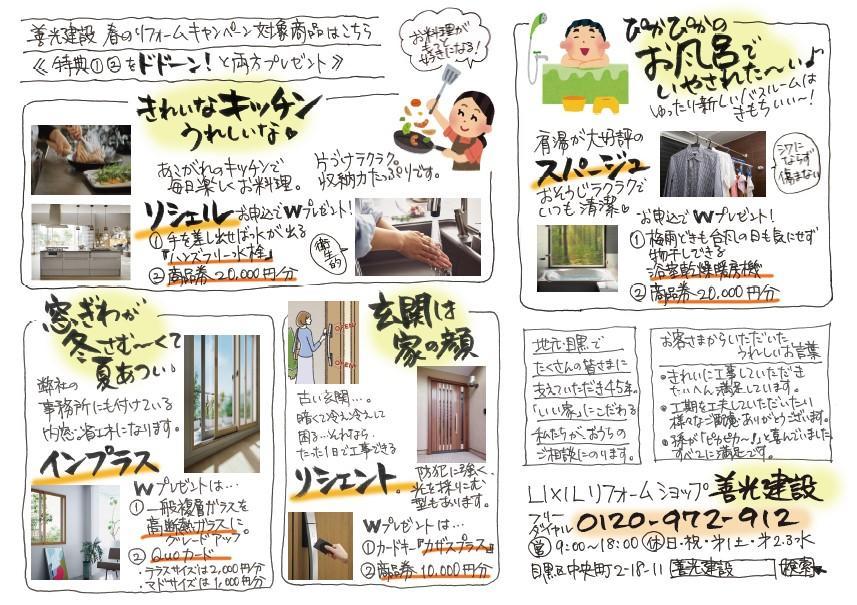 善光建設 春のリフォームキャンペーン対象商品はこちら
《特典①②をドドーン！と両方プレゼント》
お料理が
もっと
好きになる！
きれいなキッチン
うれしいな
あこがれのキッチンで
毎日楽しくお料理。
片づけラクラク。
収納力たっぷりです。
リシェル お申込でWプレゼント！
①手を差し出せば水が出る
『ハンズフリー水栓』
②商品券20,000円分
衛生的
ぴかぴかの
お風呂で
いやされた〜い♪
ゆったり新しいバスルームは
きもちいい〜！
肩湯が大好評の
スパージュ
おそうじラクラクで
いつも清潔
シワに
ならず
傷まない
お申込でWプレゼント！
①梅雨どきも台風の日も気にせず
物干しできる
浴室乾燥暖房機
②商品券20,000円分
窓ぎわが
冬さむ〜くて
夏あつい
弊社の
事務所にも付けている
内窓。省エネになります。
インプラス
Wプレゼントは…
①一般複層ガラスを
高断熱ガラスに
グレードアップ
②Quoカード
・テラスサイズは2,000円分
・マドサイズは1,000円分
玄関は
家の顔
OPEN
OPEN
古い玄関…。
暗くて冷え冷えして
困る…それなら、
たった1日で工事できる
リシェント。
防犯に強く、
光を採りこむ
型もあります。
Wプレゼントは…
①カードキー『カザスプラス』
②商品券10,000円分
地元・目黒で
たくさんの皆さまに
支えていただき45年。
「いい家」にこだわる
私たちが、おうちの
ご相談にのります。
お客さまからいただいた
うれしいお言葉
・きれいに工事していただき
たいへん満足しています。
・工期を工夫していただいたり
様々なご配慮ありがとうございます。
・孫が「ピカピカー！」と喜んでいました
すべてに満足です。
LIXILリフォームショップ 善光建設
フリー
ダイヤル 0120-972-912
営 9:00〜18:00 休 日・祝・第1土・第2.3水
目黒区中央町2-18-11 善光建設 検索